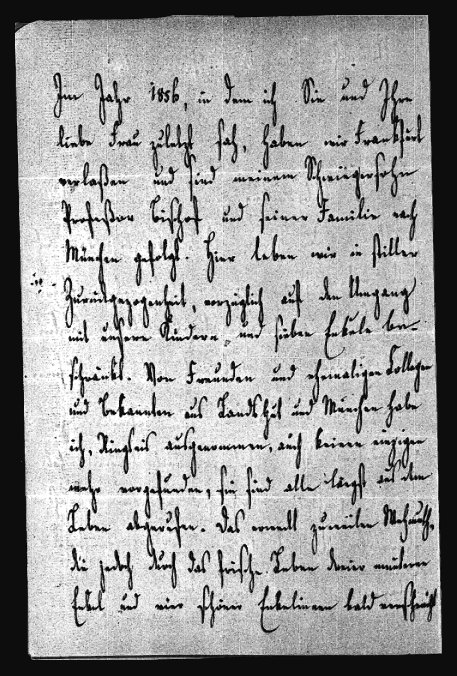 Im Jahr 1856, in dem ich Sie und Ihre
liebe Frau zuletzt sah, haben wir Frankfurt
verlaßen und sind meinem Schwiegersohn
Profeßor Bischof und seiner Familie nach
München gefolgt. Hier leben wir in stiller
Zurückgezogenheit, vorzüglich auf den Umgang
mit unsern Kindern und sieben Enkeln be-
schränkt. Von Freunden und ehemaligen Collegen
und Bekannten aus Landshut und München habe
ich, Ringseis ausgenommen, auch keinen einzigen
mehr vorgefunden, sie sind alle längst aus dem
Leben abgerufen. Das erweckt zuweilen Wehmuth,
die jedoch durch das frische Leben dreier munterer
Enkel und vier schöner Enkelinnen bald verscheucht